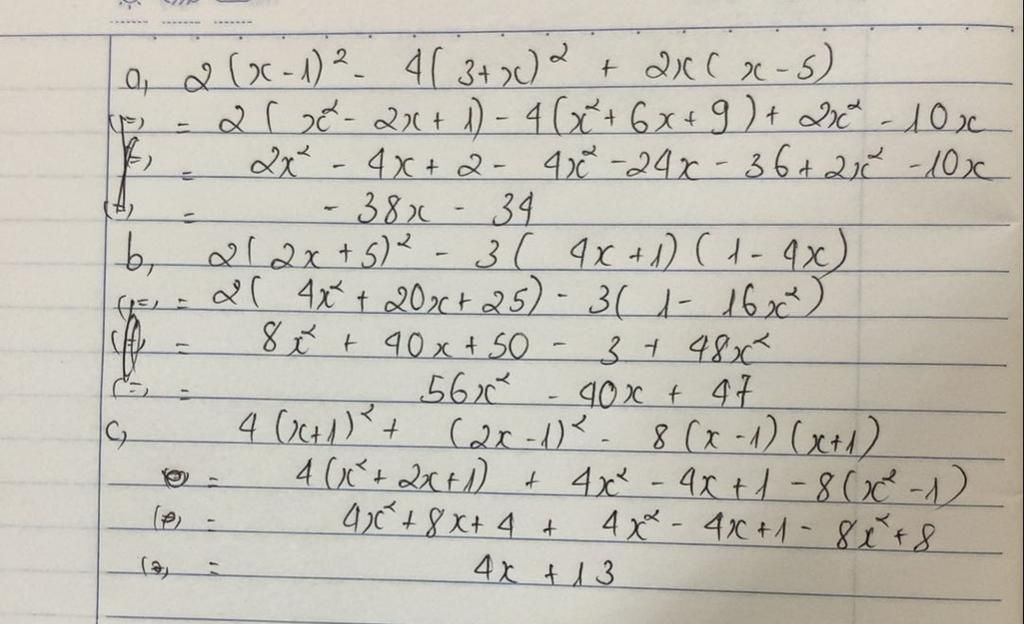 a, 2(x-1)² - 4(3+x)² + 2x(x-5)
= 2(x² - 2x + 1) - 4(x² + 6x + 9) + 2x² - 10x
= 2x² - 4x + 2 - 4x² - 24x - 36 + 2x² - 10x
= - 38x - 34
b, 2(2x+5)² - 3(4x+1)(1-4x)
= 2(4x² + 20x + 25) - 3(1 - 16x²)
= 8x² + 40x + 50 - 3 + 48x²
= 56x² - 40x + 47
c, 4(x+1)² + (2x-1)² - 8(x-1)(x+1)
= 4(x² + 2x + 1) + 4x² - 4x + 1 - 8(x² - 1)
= 4x² + 8x + 4 + 4x² - 4x + 1 - 8x² + 8
= 4x + 13